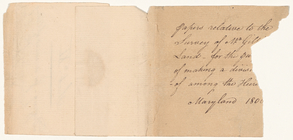 Papers relative to the
Survey of Mr. Gil
Land, for the
of making a divis
of among the Heirs
Maryland 180